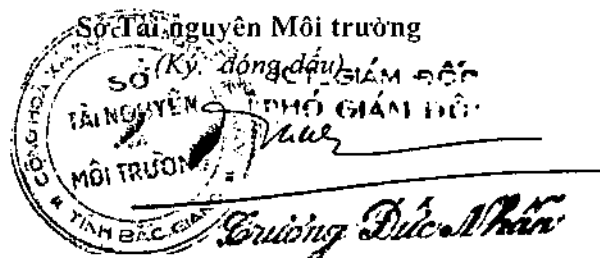 Sở Tài nguyên Môi trường
(Ký, đóng dấu)
KT. GIÁM ĐỐC
PHÓ GIÁM ĐỐC
SỞ
TÀI NGUYÊN
VÀ
MÔI TRƯỜNG
TỈNH BẮC GIANG
Trương Đức Nhấn